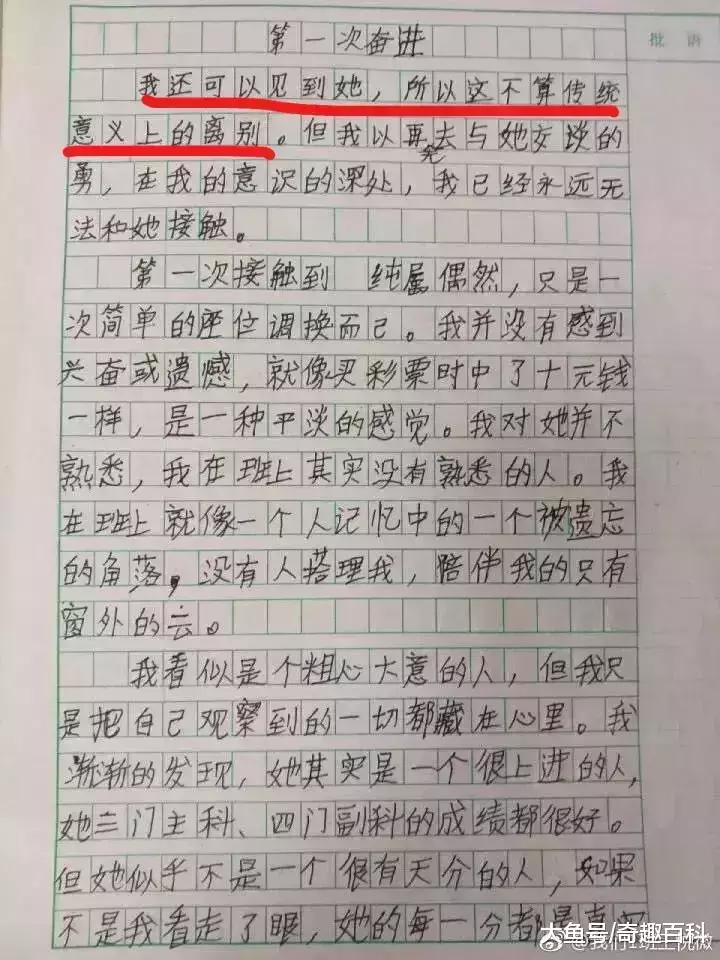 批语
第一次奋进
我还可以见到她，所以这不算传统
意义上的离别。但我以再去与她交谈的
勇，在我的意识的深处，我已经永远无
法和她接触。
第一次接触到 纯属偶然，只是一
次简单的座位调换而已。我并没有感到
兴奋或遗憾，就像买彩票时中了十元钱
一样，是一种平淡的感觉。我对她并不
熟悉，我在班上其实没有熟悉的人。我
在班上就像一个人记忆中的一个被遗忘
的角落，没有人搭理我，陪伴我的只有
窗外的云。
我看似是个粗心大意的人，但我只
是把自己观察到的一切都藏在心里。我
渐渐的发现，她其实是一个很上进的人，
她三门主科、四门副科的成绩都很好。
但她似乎不是一个很有天分的人，如果
不是我看走了眼，她的每一分都是
大鱼号/奇趣百科